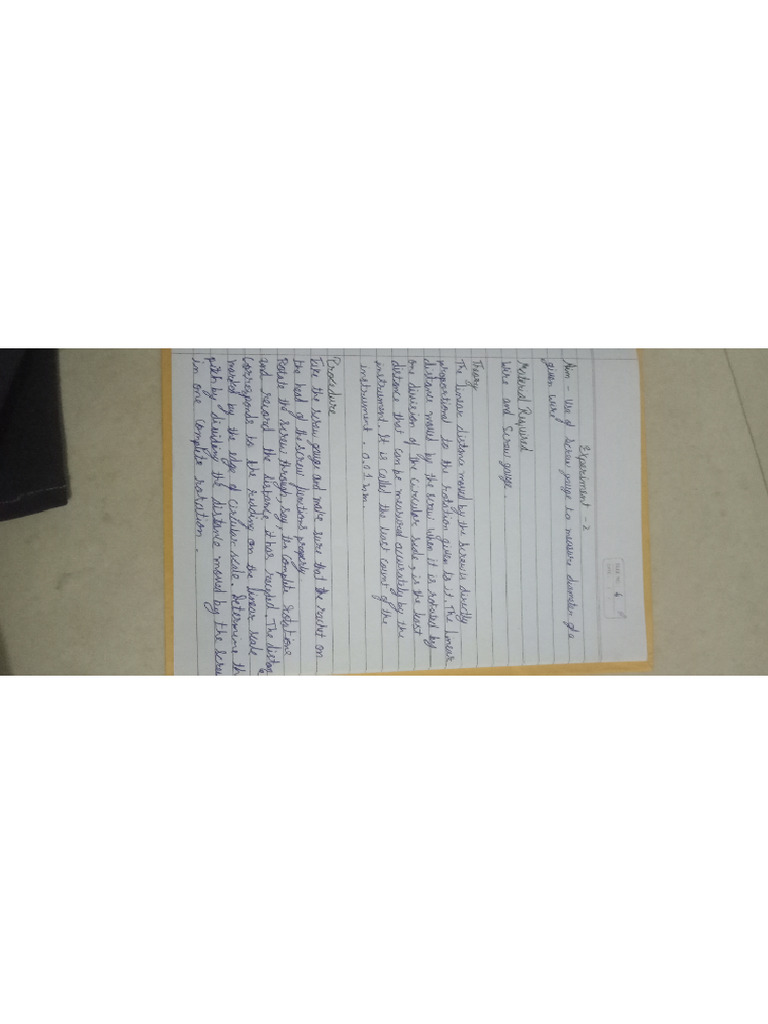 PAGE NO. 4
Experiment - 2
Aim - Use of screw gauge to measure diameter of a
given wire
Material Required
Wire and Screw gauge.
Theory
The linear distance moved by the screw is directly
proportional to the rotation given to it. The linear
distance moved by the screw when it is rotated by
one division of the circular scale, is the least
distance that can be measured accurately by the
instrument. It is called the least count of the
instrument. 0.01mm.
Procedure
Take the screw gauge and make sure that the rachet on
the head of the screw functions properly
Rotate the screw through, say, ten complete rotations
and record the distance it has receded. The distance
corresponds to the reading on the linear scale
marked by the edge of circular scale. Determine th
pitch by dividing the distance moved by the screw
in one complete rotation.